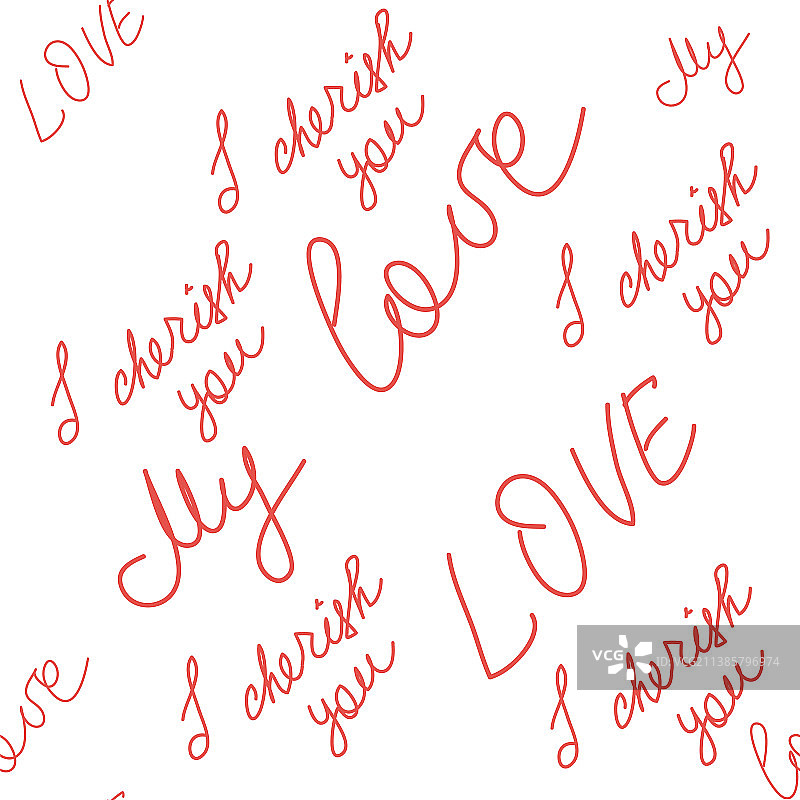 LOVE
I cherish
you
My
Love
I cherish
you
I cherish
you
My
LOVE
I cherish
you
I cherish
you
VCG ID: VCG211385796974
ove
Lo